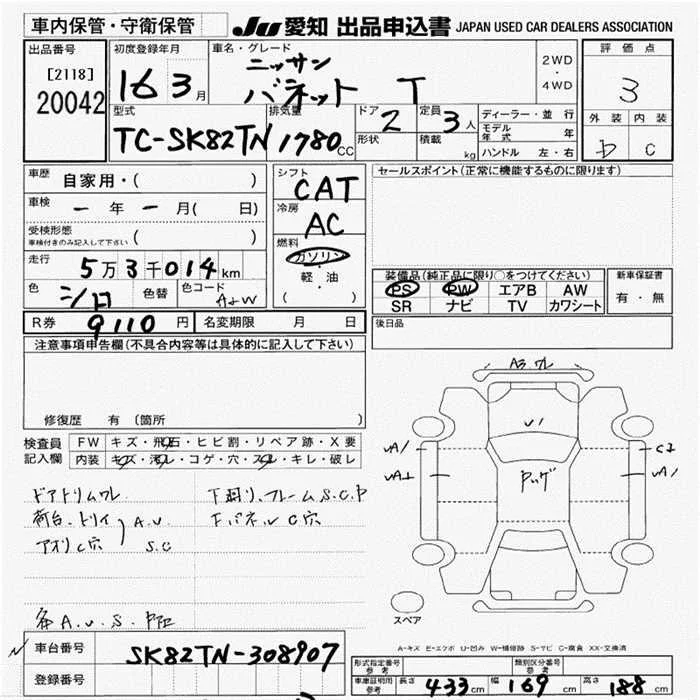 車内保管・守衛保管 Ju 愛知 出品申込書 JAPAN USED CAR DEALERS ASSOCIATION
出品番号 初度登録年月 車名・グレード 評価点
[2118] 16 3月 ニッサン 2WD
20042 バネット T 4WD 3
型式 排気量 ドア 定員 ディーラー・並行 外装 内装
TC-SK82TN 1780cc 2 3人 モデル年式 年 D C
形状 積載 kg ハンドル 左・右
車歴 自家用・( ) シフト CAT セールスポイント(正常に機能するものに限ります)
車検 ー年ー月( 日) 冷房 AC
受検形態 ( )
車検付きのみ記入して下さい
燃料 ガソリン
走行 5万3千014km 軽・油
( )
装備品(純正品に限り○をつけてください) 新車保証書
色 シロ 色替 色コード PS PW エアB AW 有・無
SR ナビ TV カワシート
R券 9110円 名変期限 月 日 後日品
注意事項申告欄(不具合内容等は具体的に記入して下さい)
A3 ワレ
修復歴 有 (箇所 )
U1
検査員記入欄 FW キズ・飛石・ヒビ割・リペア跡・X要
内装 キズ・汚レ・コゲ・穴・スレ・キレ・破レ
UA1 C2
UA1
ドアトリムワレ 下廻り、フレームS.C.P
荷台.トリイ A.U. 下パネルC穴
アオリC穴 S.C
各A.U.S.
スペア
A-キズ E-エクボ U-凹み W-補修跡 S-サビ C-腐食 XX-交換済
車台番号 SK82TN-308907
登録番号
形式指定番号 参考 類別区分番号 参考
車庫証明用 参考 長さ 433cm 幅 169cm 高さ 188cm